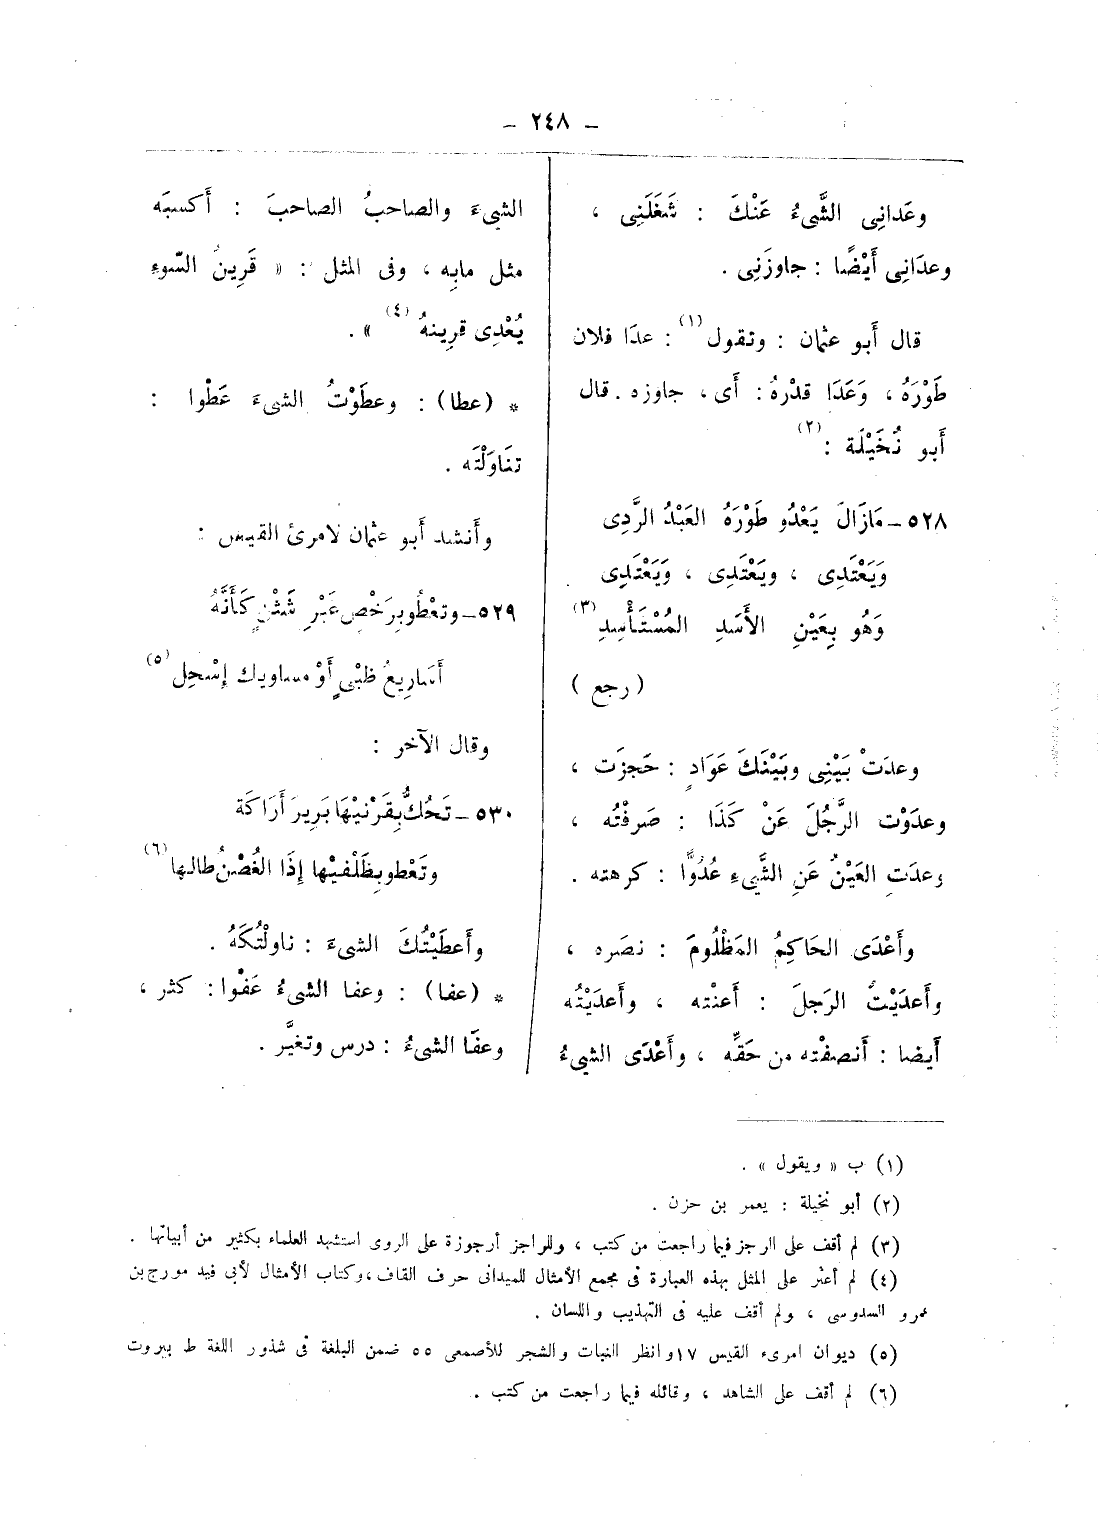 – ٢٤٨ –
وعَدانِى الشَّىءُ عَنْكَ : شَغَلَنِى ،
وعدَانِى أَيْضًا : جاوزَنِى .
قال أَبو عثمان : وتقول (١) : عدَا فلان
طَوْرَهُ ، وَعَدَا قدْرهُ : أَى ، جاوزه . قال
أَبو نُخَيْلَة (٢) :
٥٢٨ – مَازَالَ يَعْدُو طَوْرَهُ العَبْدُ الرَّدِى
وَيَعْتَدِى ، ويَعْتَدِى ، وَيَعْتَدِى
وَهُو بِعَيْنِ الأَسَدِ المُسْتَأْسِدِ (٣)
( رجع )
وعدَتْ بَيْنِى وبَيْنَكَ عَوَادٍ : حَجزَت ،
وعدَوْت الرَّجُلَ عَنْ كَذَا : صَرفْتُه ،
وعدَتِ العَيْنُ عَنِ الشَّىءِ عُدُوًّا : كرهته .
وأَعْدَى الحَاكِمُ المَظْلُومَ : نصَره ،
وأَعدَيْتُ الرَجلَ : أَعنْته ، وأَعدَيْتُه
أَيضا : أَنصفْته من حَقِّه ، وأَعْدَى الشىءُ
الشىءَ والصاحبُ الصاحبَ : أَكسبَه
مثل مابِه ، وفى المثل : « قَرِينُ السّوءِ
يُعْدِى قرِينهُ (٤) » .
* (عطا) : وعطَوْتُ الشىءَ عَطْوا :
تنَاوَلْتَه .
وأَنشد أَبو عثمان لامرئ القيس :
٥٢٩ – وتعْطُو بِرَخْصٍ غَيْرِ شَثْنٍ كَأَنَّهُ
أَسَارِيعُ ظبْىٍ أَوْ مساويك إِسْحِل (٥)
وقال الآخر :
٥٣٠ – تَحُكُّ بِقَرْنيْهَا بَرِيرَ أَرَاكَة
وتَعْطو بِظَلْفيْها إِذَا الغُصْنُ طالها (٦)
وأَعطَيْتُكَ الشىءَ : ناولْتُكَهُ .
* (عفا) : وعفا الشىءُ عَفْوا : كثر ،
وعفَا الشىءُ : درس وتغيَّر .
(١) ب « ويقول » .
(٢) أبو نخيلة : يعمر بن حزن .
(٣) لم أقف على الرجز فيما راجعت من كتب ، وللراجز أرجوزة على الروى استشهد العلماء بكثير من أبياتها .
(٤) لم أعثر على المثل بهذه العبارة فى مجمع الأمثال للميدانى حرف القاف ، وكتاب الأمثال لأبى فيد مورج بن
عمرو السدوسى ، ولم أقف عليه فى التهذيب واللسان .
(٥) ديوان امرىء القيس ١٧ وانظر النبات والشجر للأصمعى ٥٥ ضمن البلغة فى شذور اللغة ط بيروت
(٦) لم أقف على الشاهد ، وقائله فيما راجعت من كتب .